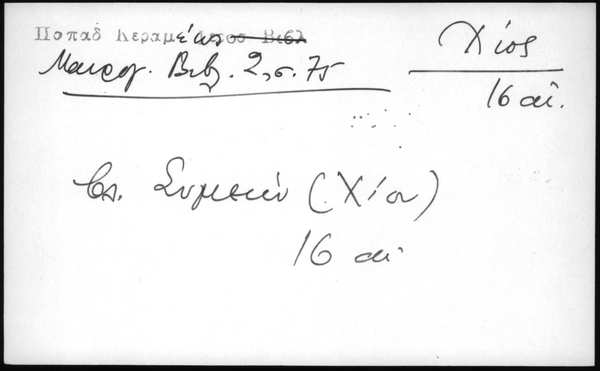 Παπαδ Κεραμέως
Μαυρογ. Βιβ. 2, σ. 75
Χίος
16 αἰ.
Βλ. Συμεών (Χίου)
16 αἰ